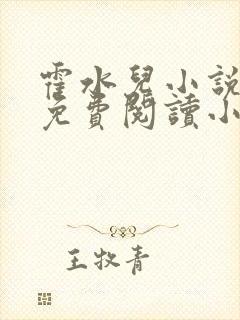 霍水兒小説
免費閲讀小
王牧青